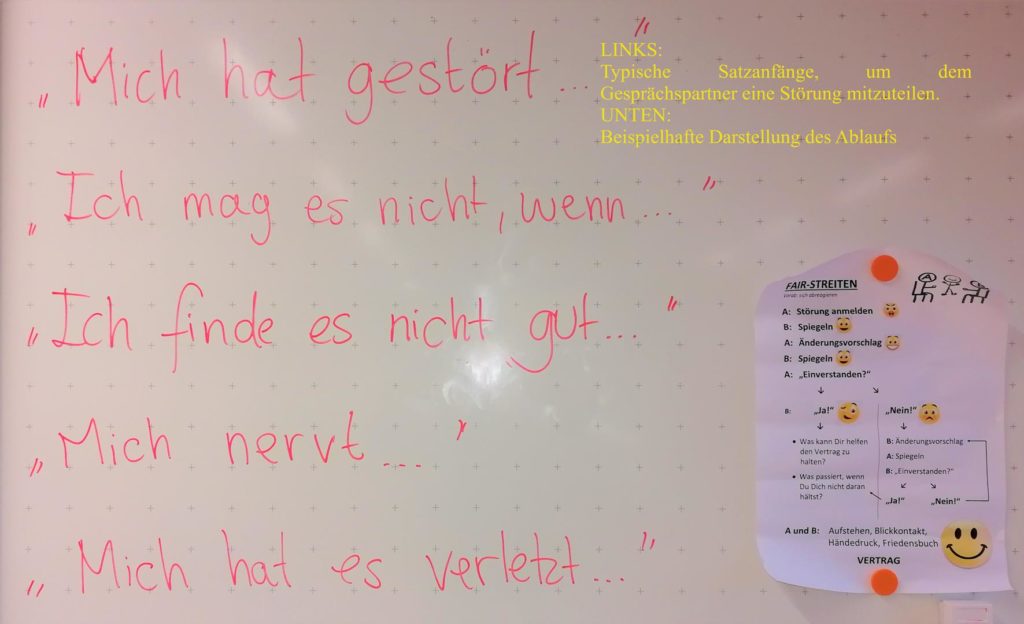 „Mich hat gestört..."
LINKS:
Typische Satzanfänge, um dem
Gesprächspartner eine Störung mitzuteilen.
UNTEN:
Beispielhafte Darstellung des Ablaufs
„Ich mag es nicht, wenn..."
„Ich finde es nicht gut..."
„Mich nervt..."
„Mich hat es verletzt..."
FAIR-STREITEN
Vorab: sich abreagieren
A: Störung anmelden
B: Spiegeln
A: Änderungsvorschlag
B: Spiegeln
A: „Einverstanden?"
B: „Ja!"
• Was kann Dir helfen
den Vertrag zu
halten?
• Was passiert, wenn
Du Dich nicht daran
hältst?
„Nein!"
B: Änderungsvorschlag
A: Spiegeln
B: „Einverstanden?"
„Ja!" „Nein!"
A und B: Aufstehen, Blickkontakt,
Händedruck, Friedensbuch
VERTRAG